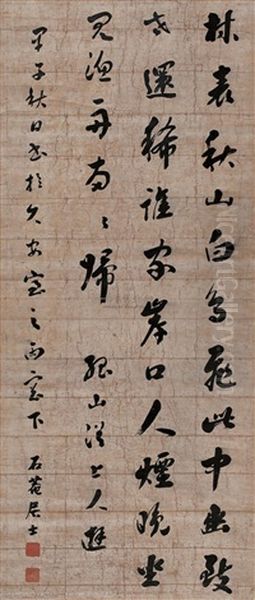 林表秋山白鳥飛此中幽致
世還稀誰家岸口人煙晚坐
見漁舟兩〻歸 山 上人遊
甲子秋日書於久安室之西窗下 石菴居士